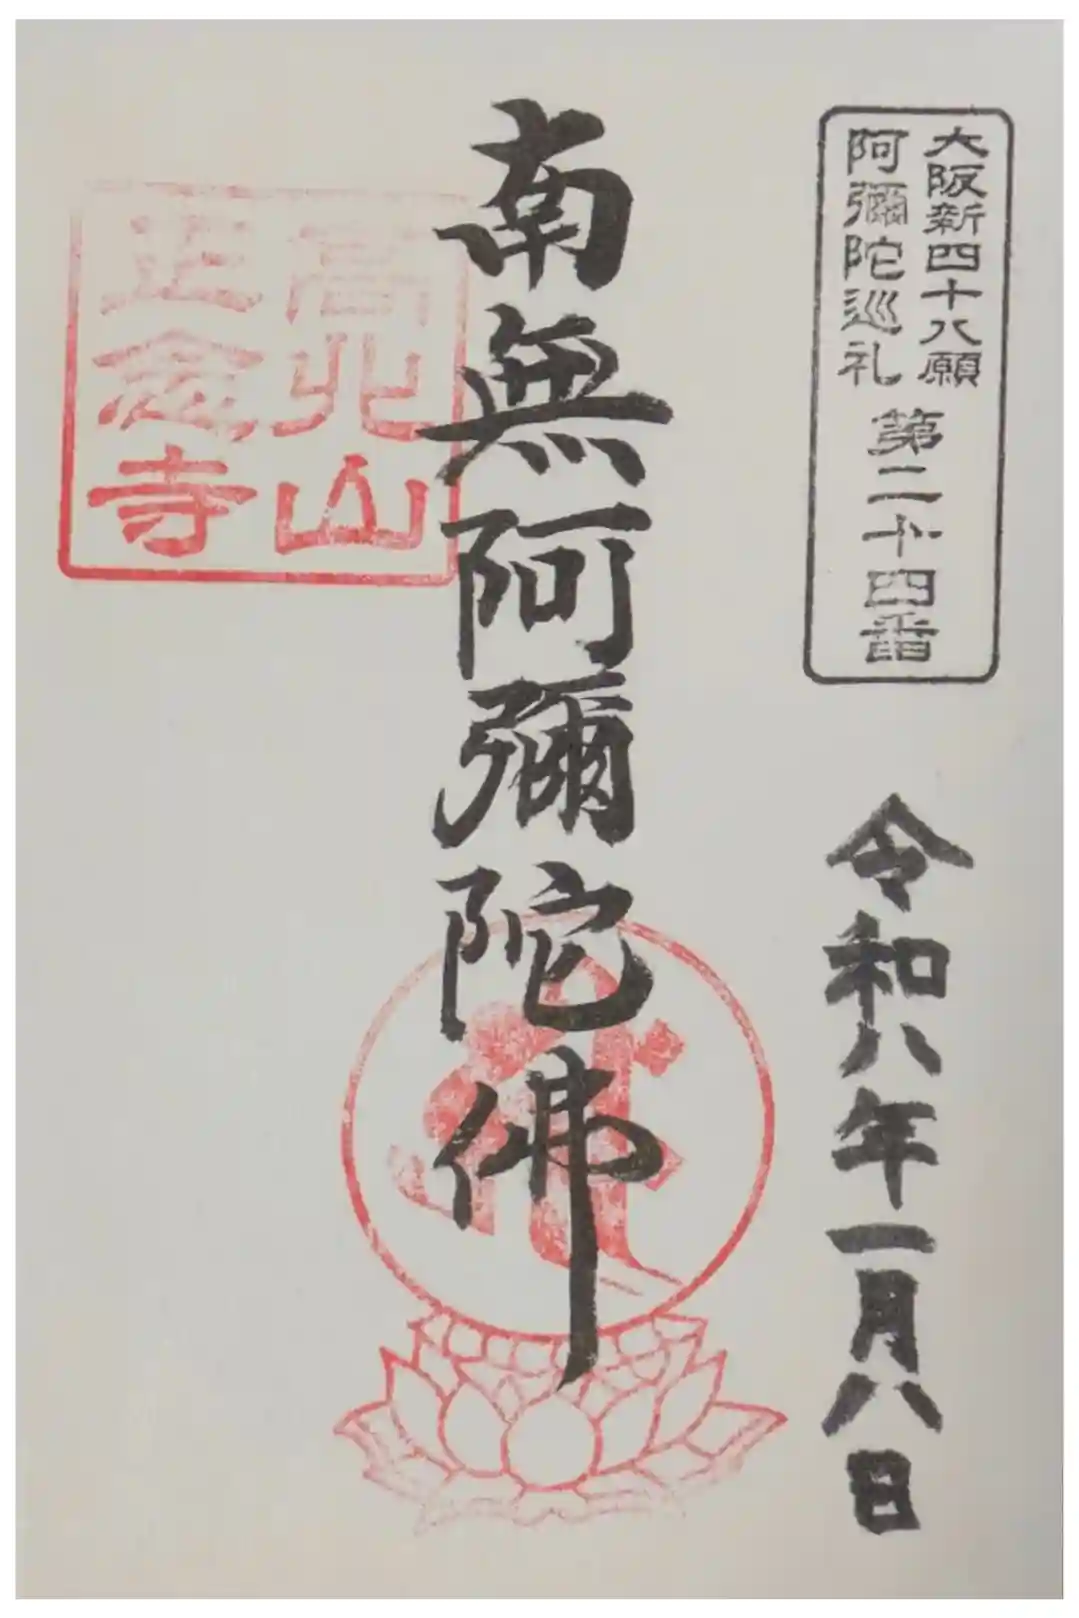 大阪新四十八願
阿彌陀巡礼
第二十四番
令和八年一月八日
南無阿彌陀佛
高北山
正念寺